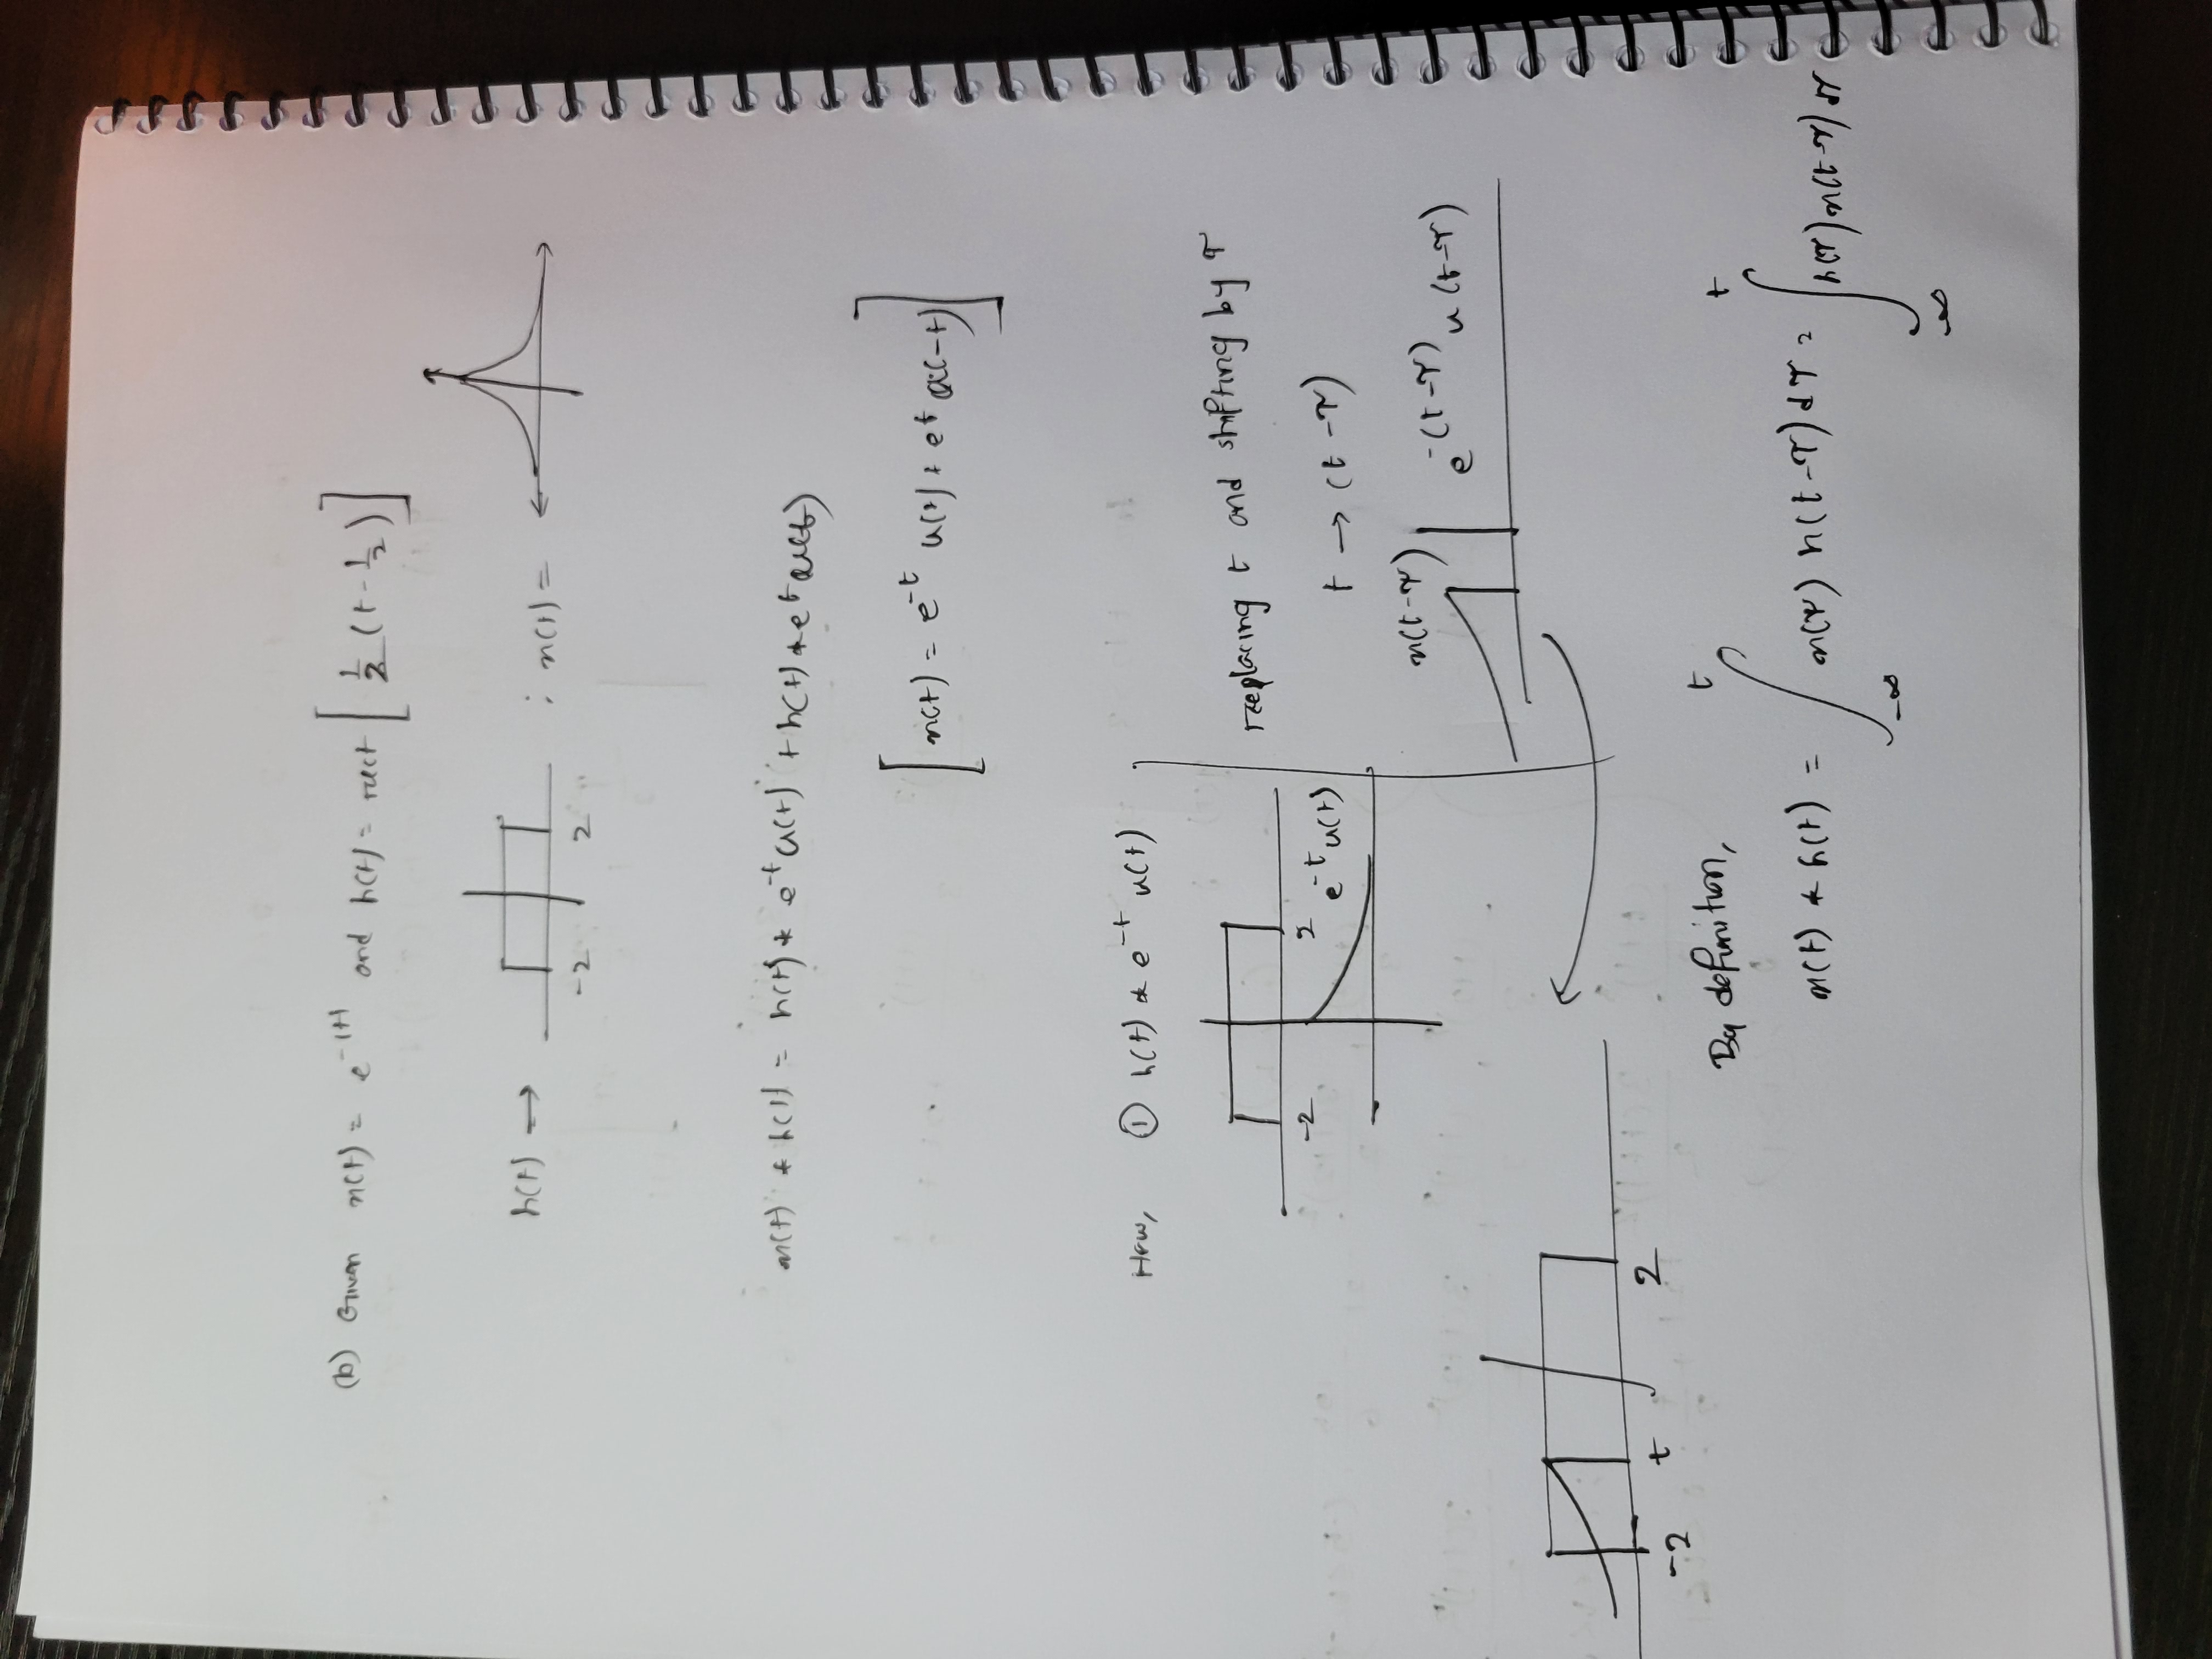 (b) Given x(t) = e^-|t| and h(t) = rect [ 1/2 (t - 1/2) ]
h(t) → -2 2 ; x(t) =
x(t) * h(t) = h(t) * e^-t u(t) + h(t) * e^t u(-t)
[ x(t) = e^-t u(t) + e^t u(-t) ]
Now, ① h(t) * e^-t u(t)
-2 2
e^-t u(t)
replacing t and shifting by τ
t → (t - τ)
x(t-τ) e^-(t-τ) u(t-τ)
-2 t 2
By definition,
x(t) * h(t) = ∫_-∞^t x(τ) h(t-τ) dτ = ∫_-∞^t h(τ) x(t-τ) dτ